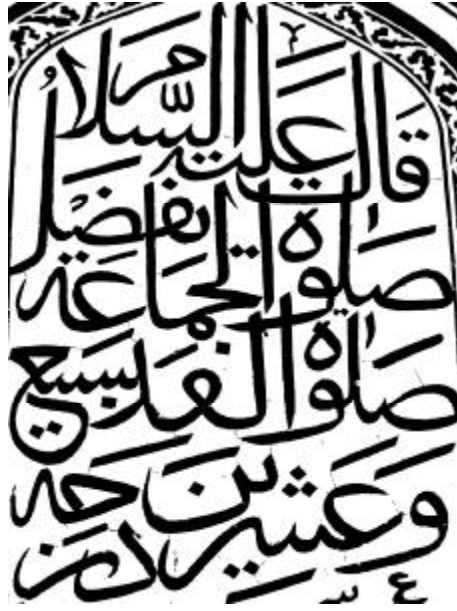 قال عليه السلام
صلوة الجماعة تفضل
صلوة الفذ بسبع
وعشرين درجة